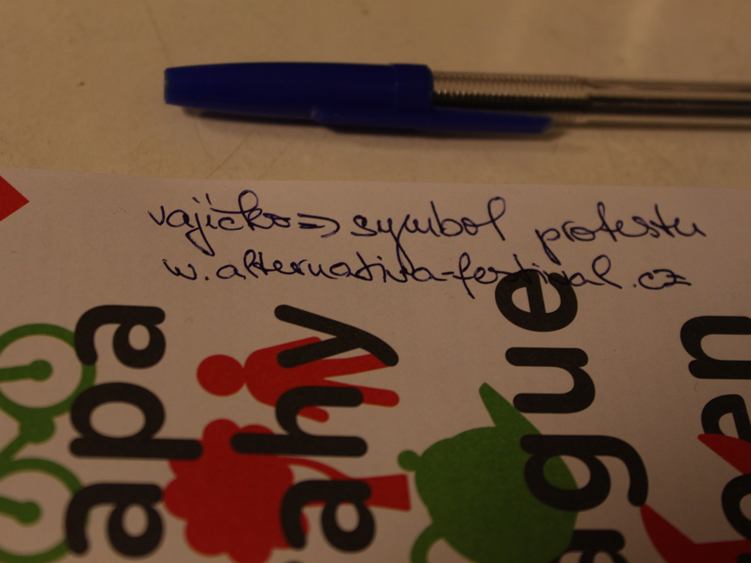 vajíčko => symbol protestu
w.alternativa-festival.cz
apa
ahy
ague
en